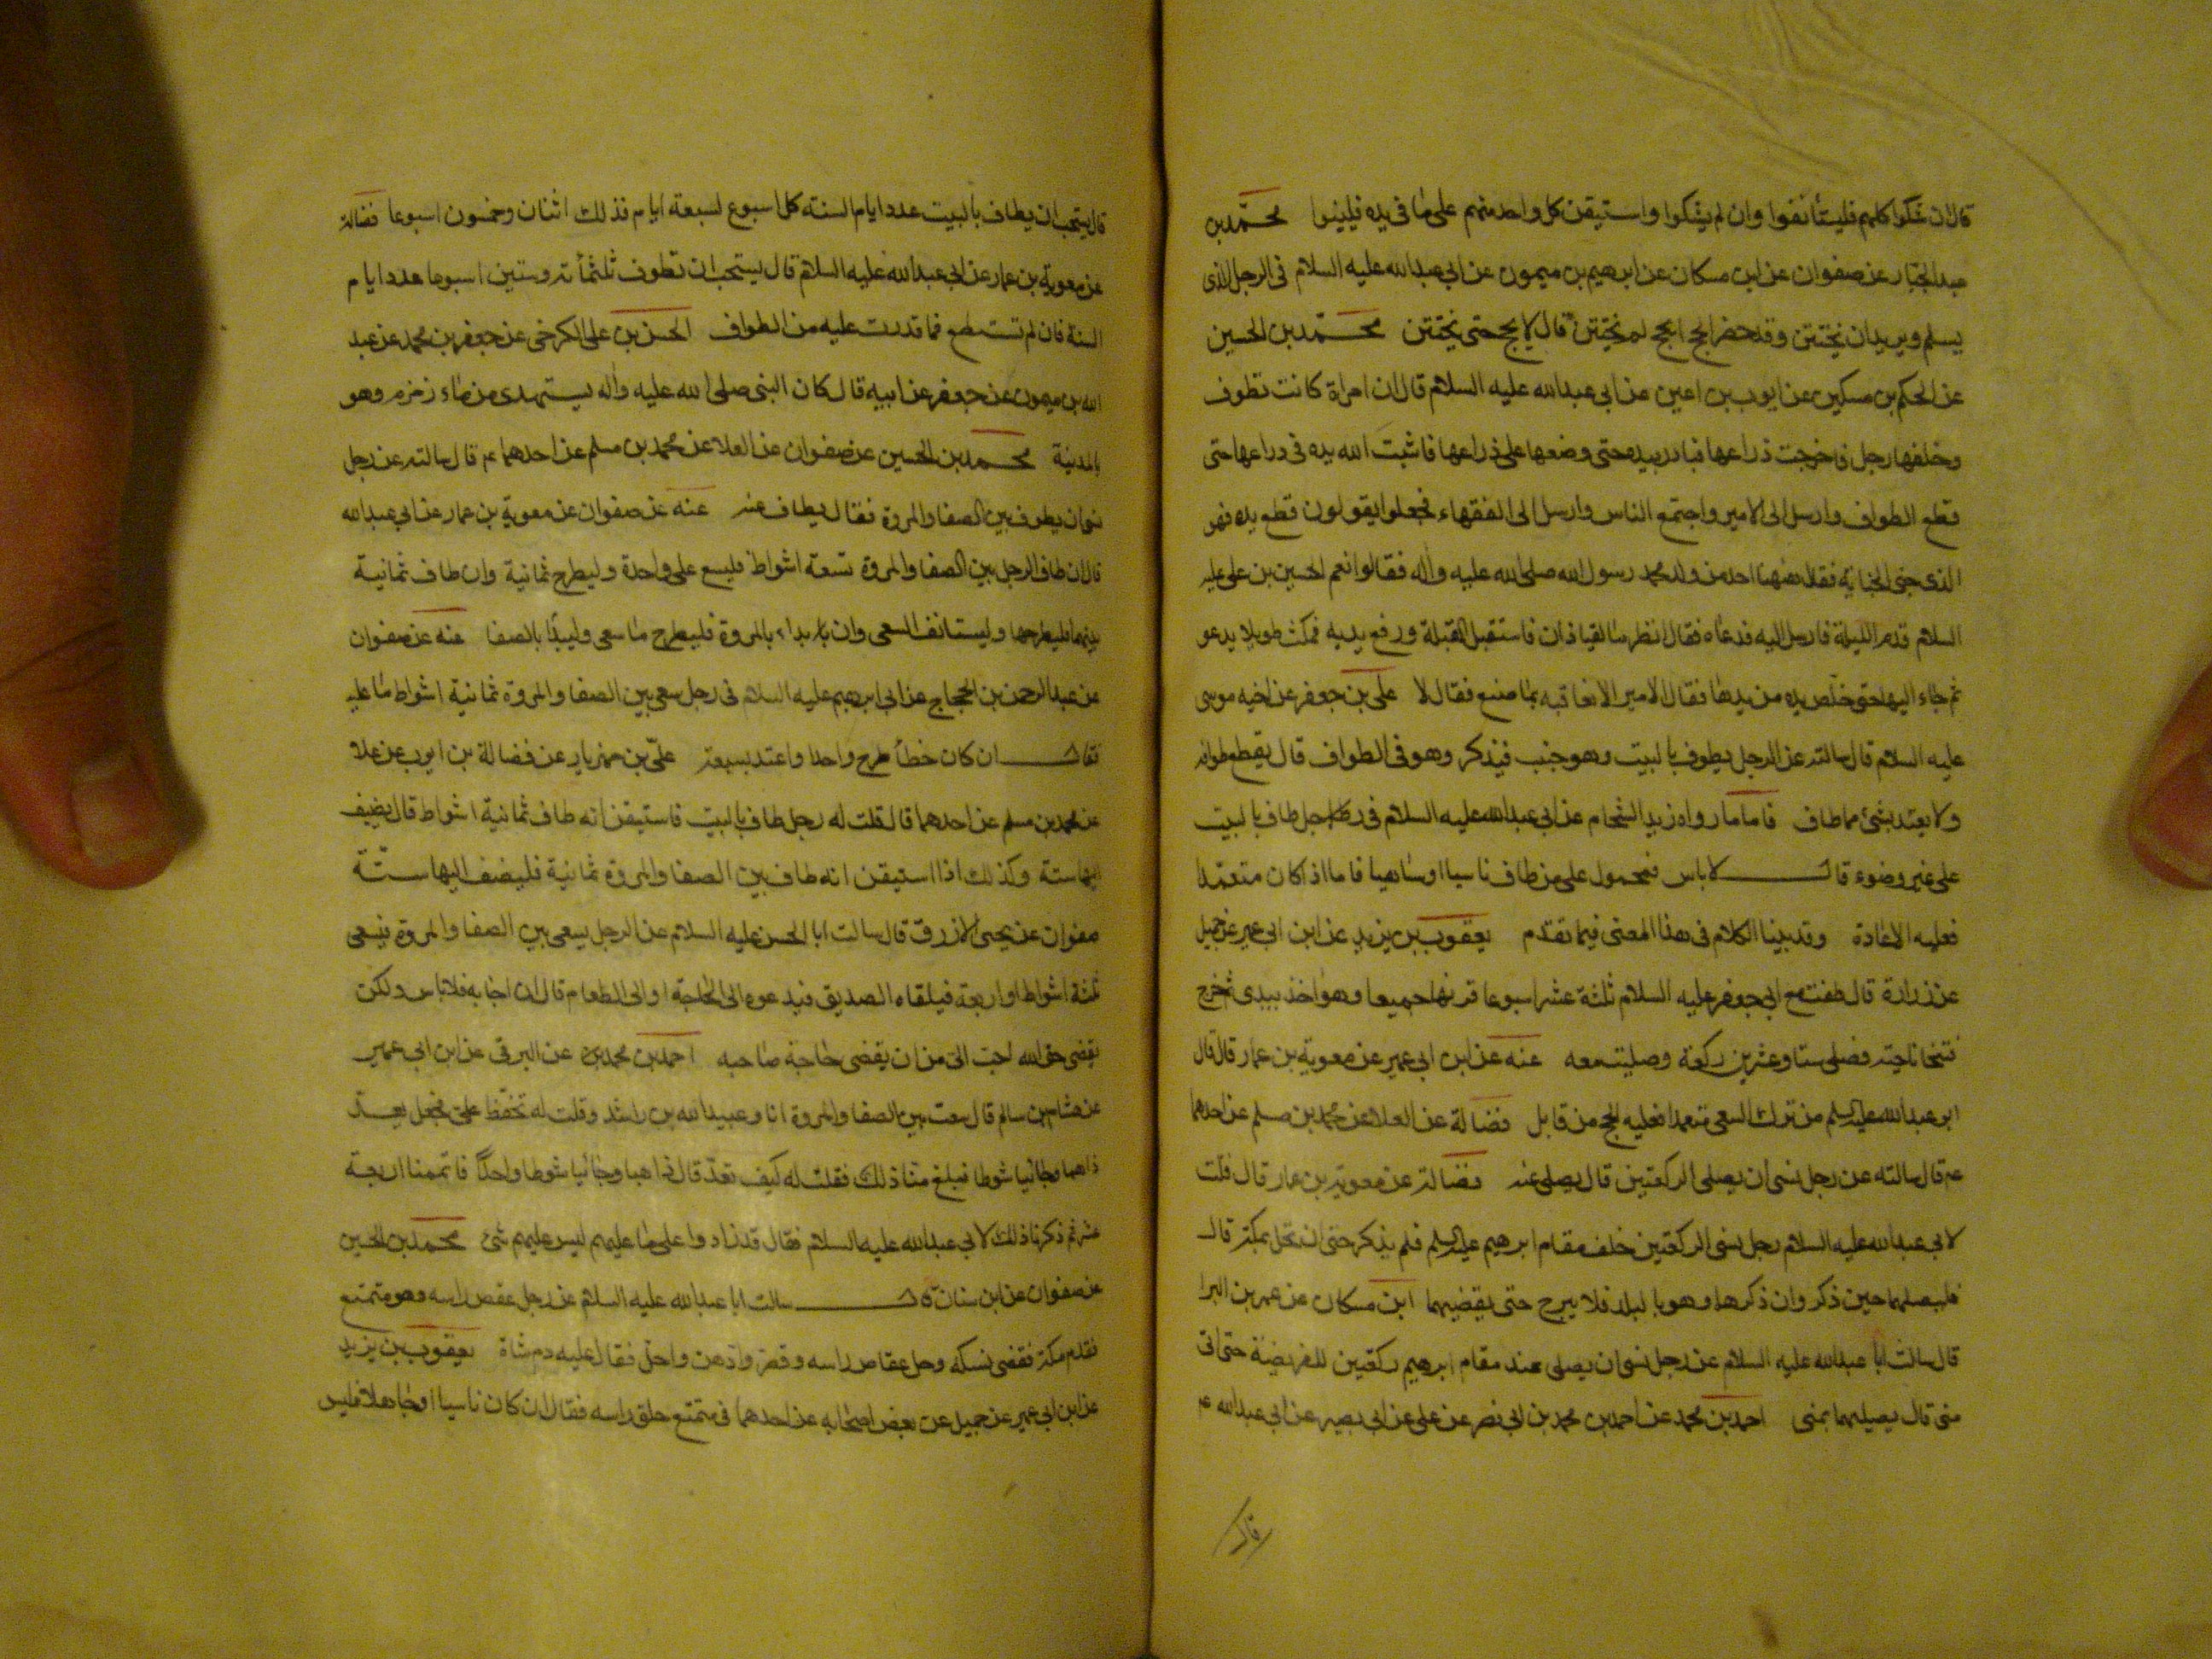 قال ان شكوا كلهم فليستأنفوا وان لم يشكوا واستيقن كل واحد منهم على ما في يده فليبنوا محمد بن
عبد الجبار عن صفوان عن ابن مسكان عن ابرهيم بن ميمون عن ابي عبد الله عليه السلام في الرجل الذى
يسلم ويريد ان يختتن وقد حضر الحج ايحج ام يختتن قال لا يحج حتى يختتن محمد بن الحسين
عن الحكم بن مسكين عن ايوب بن اعين عن ابي عبد الله عليه السلام قال ان امراة كانت تطوف
وخلفها رجل فاخرجت ذراعها فبادر بيده حتى وضعها على ذراعها فاثبت الله يده فى ذراعها حتى
قطع الطواف وارسل الى الامير واجتمع الناس وارسل الى الفقهاء فجعلوا يقولون قطع يده فهو
الذى جنى الجناية فقال ههنا احد من ولد محمد رسول الله صلى الله عليه واله فقالوا نعم الحسين بن على عليه
السلام قدم الليلة فارسل اليه فدعاه فقال انظر ما لقيا ذان فاستقبل القبلة ورفع يديه فمكث طويلا يدعو
ثم جاء اليها حتى خلص يده من يدها فقال الامير الا نعاقبه بما صنع فقال لا على بن جعفر عن اخيه موسى
عليه السلام قال سالته عن الرجل يطوف بالبيت وهو جنب فيذكر وهو فى الطواف قال يقطع طوافه
ولا يعتد بشئ مما طاف فاما ما رواه زيد الشحام عن ابي عبد الله عليه السلام في رجل طاف بالبيت
على غير وضوء قال لا باس فمحمول على من طاف ناسيا او ساهيا فاما اذا كان متعمدا
فعليه الاعادة وقد بينا الكلام فى هذا المعنى فيما تقدم يعقوب بن يزيد عن ابن ابي عمير عن جميل
عن زرارة قال طفت مع ابي جعفر عليه السلام ثلثة عشر اسبوعا قرنها جميعا وهو اخذ بيدى ثم خرج
فتنحا ناحية فصلى ستا وعشرين ركعة وصليت معه عنه عن ابن ابي عمير عن معوية بن عمار قال قال
ابو عبد الله عليه السلم من ترك السعى متعمدا فعليه الحج من قابل فضالة عن العلا عن محمد بن مسلم عن احدهما
ع قال سالته عن رجل نسى ان يصلى الركعتين قال يصلى عنه فضالة عن معوية بن عمار قال قلت
لابي عبد الله عليه السلام رجل نسى الركعتين خلف مقام ابرهيم عليه السلم فلم يذكر حتى ارتحل من مكة قال
فليصلهما حين ذكر وان ذكرها وهو بالبلد فلا يبرح حتى يقضيهما ابن مسكان عن عمر بن البرا
قال سالت ابا عبد الله عليه السلام عن رجل نسى ان يصلى عند مقام ابرهيم ركعتين للفريضة حتى اتى
منى قال يصليهما بمنى احمد بن محمد عن احمد بن محمد بن ابي نصر عن على عن ابي بصير عن ابي عبد الله ع
قال
قال يستحب ان يطاف بالبيت عدد ايام السنة كل اسبوع لسبعة ايام فذلك اثنان وخمسون اسبوعا فضالة
عن معوية بن عمار عن ابي عبد الله عليه السلام قال يستحب ان تطوف ثلثمأته وستين اسبوعا عدد ايام
السنة فان لم تستطع فما قدرت عليه من الطواف الحسن بن على الكرخى عن جعفر بن محمد عن عبد
الله بن ميمون عن جعفر عن ابيه قال كان النبى صلى الله عليه واله يستهدى من ماء زمزم وهو
بالمدينة محمد بن الحسين عن صفوان عن العلا عن محمد بن مسلم عن احدهما ع قال سالته عن رجل
نسى ان يطوف بين الصفا والمروة فقال يطاف عنه عنه عن صفوان عن معوية بن عمار عن ابي عبد الله
قال ان طاف الرجل بين الصفا والمروة تسعة اشواط فليسع على واحدة وليطرح ثمانية وان طاف ثمانية
بينهما فليطرحها وليستانف السعى وان بدا بالمروة فليطرح ما سعى وليبدا بالصفا عنه عن صفوان
عن عبد الرحمن بن الحجاج عن ابي ابرهيم عليه السلام فى رجل سعى بين الصفا والمروة ثمانية اشواط ما عليه
فقال ان كان خطأ طرح واحدا واعتد بسبعة على بن مهزيار عن فضالة بن ايوب عن علا
عن محمد بن مسلم عن احدهما قال قلت له رجل طاف بالبيت فاستيقن انه طاف ثمانية اشواط قال يضيف
اليها ستة وكذلك اذا استيقن انه طاف بين الصفا والمروة ثمانية فليضف اليها ستة
صفوان عن يحيى الازرق قال سالت ابا الحسن عليه السلام عن الرجل يسعى بين الصفا والمروة فيسعى
ثلثة اشواط او اربعة فيلقاه الصديق فيدعوه الى الحاجة او الى الطعام قال ان اجابه فلا باس ولكن
يقضى حق الله احب الى من ان يقضى حاجة صاحبه احمد بن محمد بن عن البرقى عن ابن ابي عمير
عن هشام بن سالم قال سعيت بين الصفا والمروة انا وعبيد الله بن راشد وقلت له تحفظ على فجعل يعد
ذاهبا وجائيا شوطا فبلغ منا ذلك فقلت له كيف تعد قال ذاهبا وجائيا شوطا واحدا فاتممنا اربعة
عشر ثم ذكرنا ذلك لابي عبد الله عليه السلام فقال قد زادوا على ما عليهم ليس عليهم شئ محمد بن الحسين
عن صفوان عن ابن سنان قال سالت ابا عبد الله عليه السلام عن رجل عقص راسه وهو متمتع
فقدم مكة فقضى نسكه وحل عقاص راسه وقصر وادهن واحل فقال عليه دم شاة يعقوب بن يزيد
عن ابن ابي عمير عن جميل عن بعض اصحابه عن احدهما فى متمتع حلق راسه فقال ان كان ناسيا او جاهلا فليس